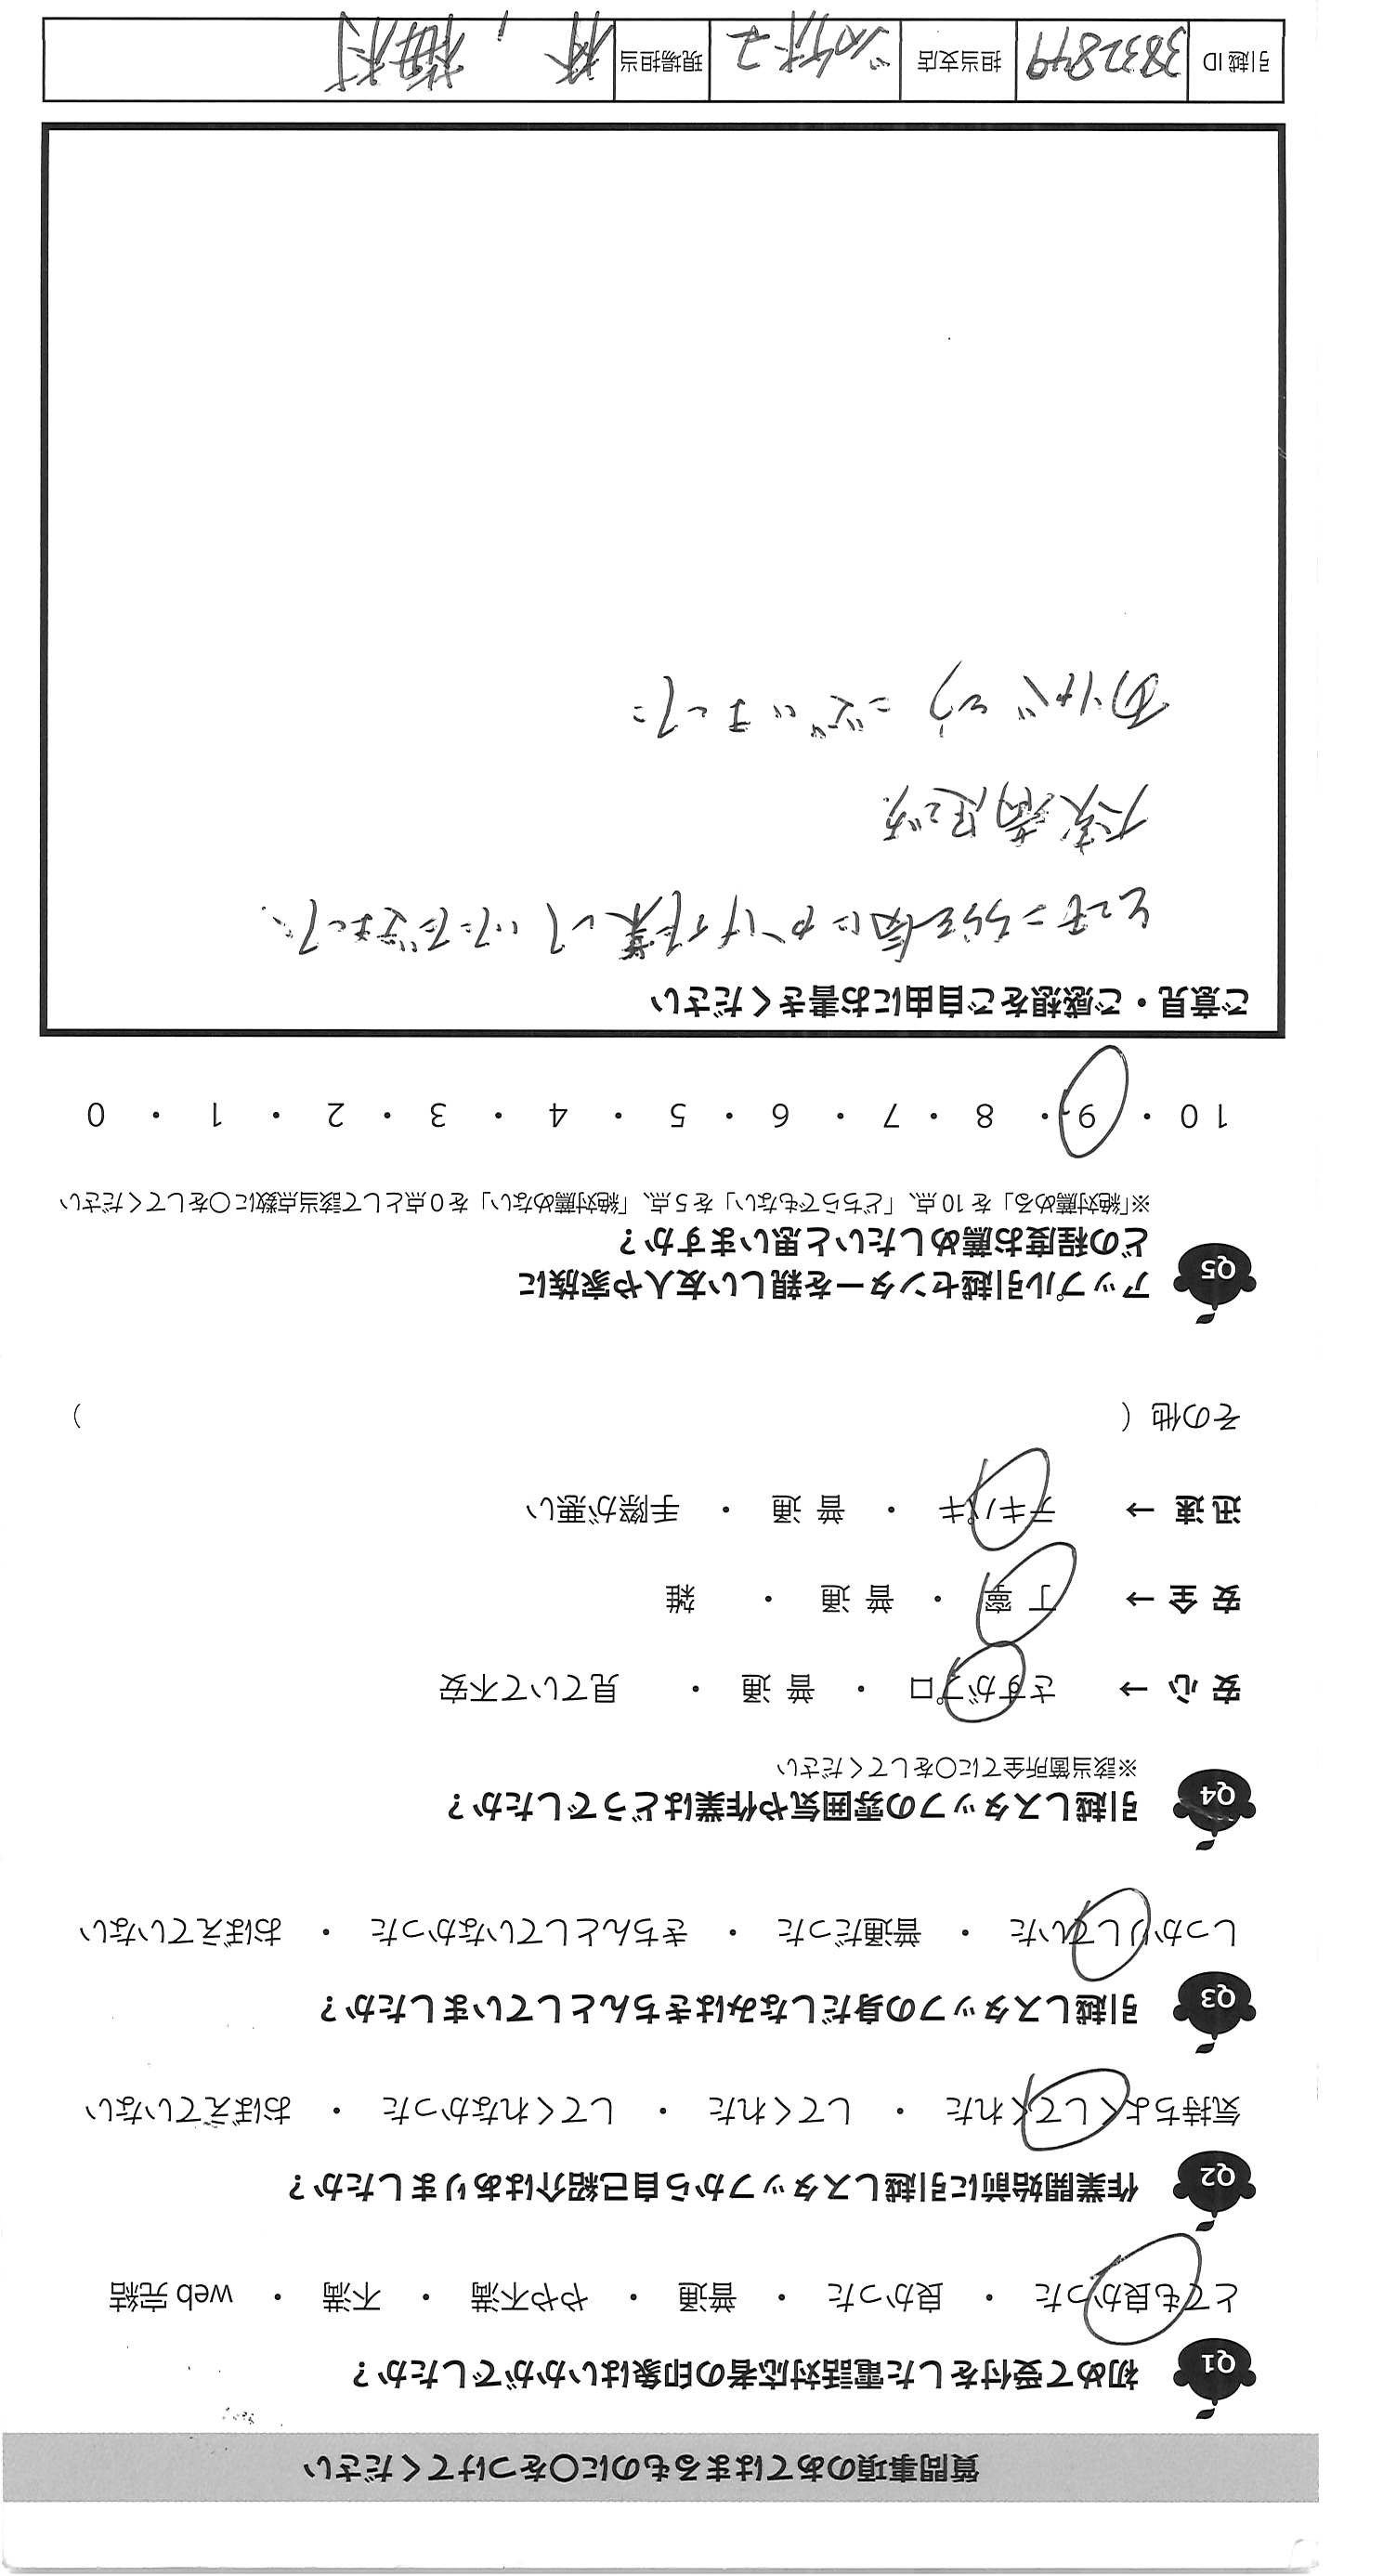 質問事項のあてはまるものに○をつけてください
Q1 初めて受付をした電話対応者の印象はいかがでしたか？
とても良かった ・ 良かった ・ 普通 ・ やや不満 ・ 不満 ・ web 完結
Q2 作業開始前に引越しスタッフから自己紹介はありましたか？
気持ちよくしてくれた ・ してくれた ・ してくれなかった ・ おぼえていない
Q3 引越しスタッフの身だしなみはきちんとしていましたか？
しっかりしていた ・ 普通だった ・ きちんとしていなかった ・ おぼえていない
Q4 引越しスタッフの雰囲気や作業はどうでしたか？
※該当箇所全てに○をしてください
安 心 → さすがプロ ・ 普 通 ・ 見ていて不安
安 全 → 丁 寧 ・ 普 通 ・ 雑
迅 速 → テキパキ ・ 普 通 ・ 手際が悪い
その他（ ）
Q5 アップル引越センターを親しい友人や家族に
どの程度お薦めしたいと思いますか？
※「絶対薦める」を 10 点、「どちらでもない」を 5 点、「絶対薦めない」を 0 点として該当点数に○をしてください
10 ・ 9 ・ 8 ・ 7 ・ 6 ・ 5 ・ 4 ・ 3 ・ 2 ・ 1 ・ 0
ご意見・ご感想をご自由にお書きください
作業していただきました。
大変満足です
ありがとうございました
引越 ID 3832849 担当支店 現場担当 林, 梅村